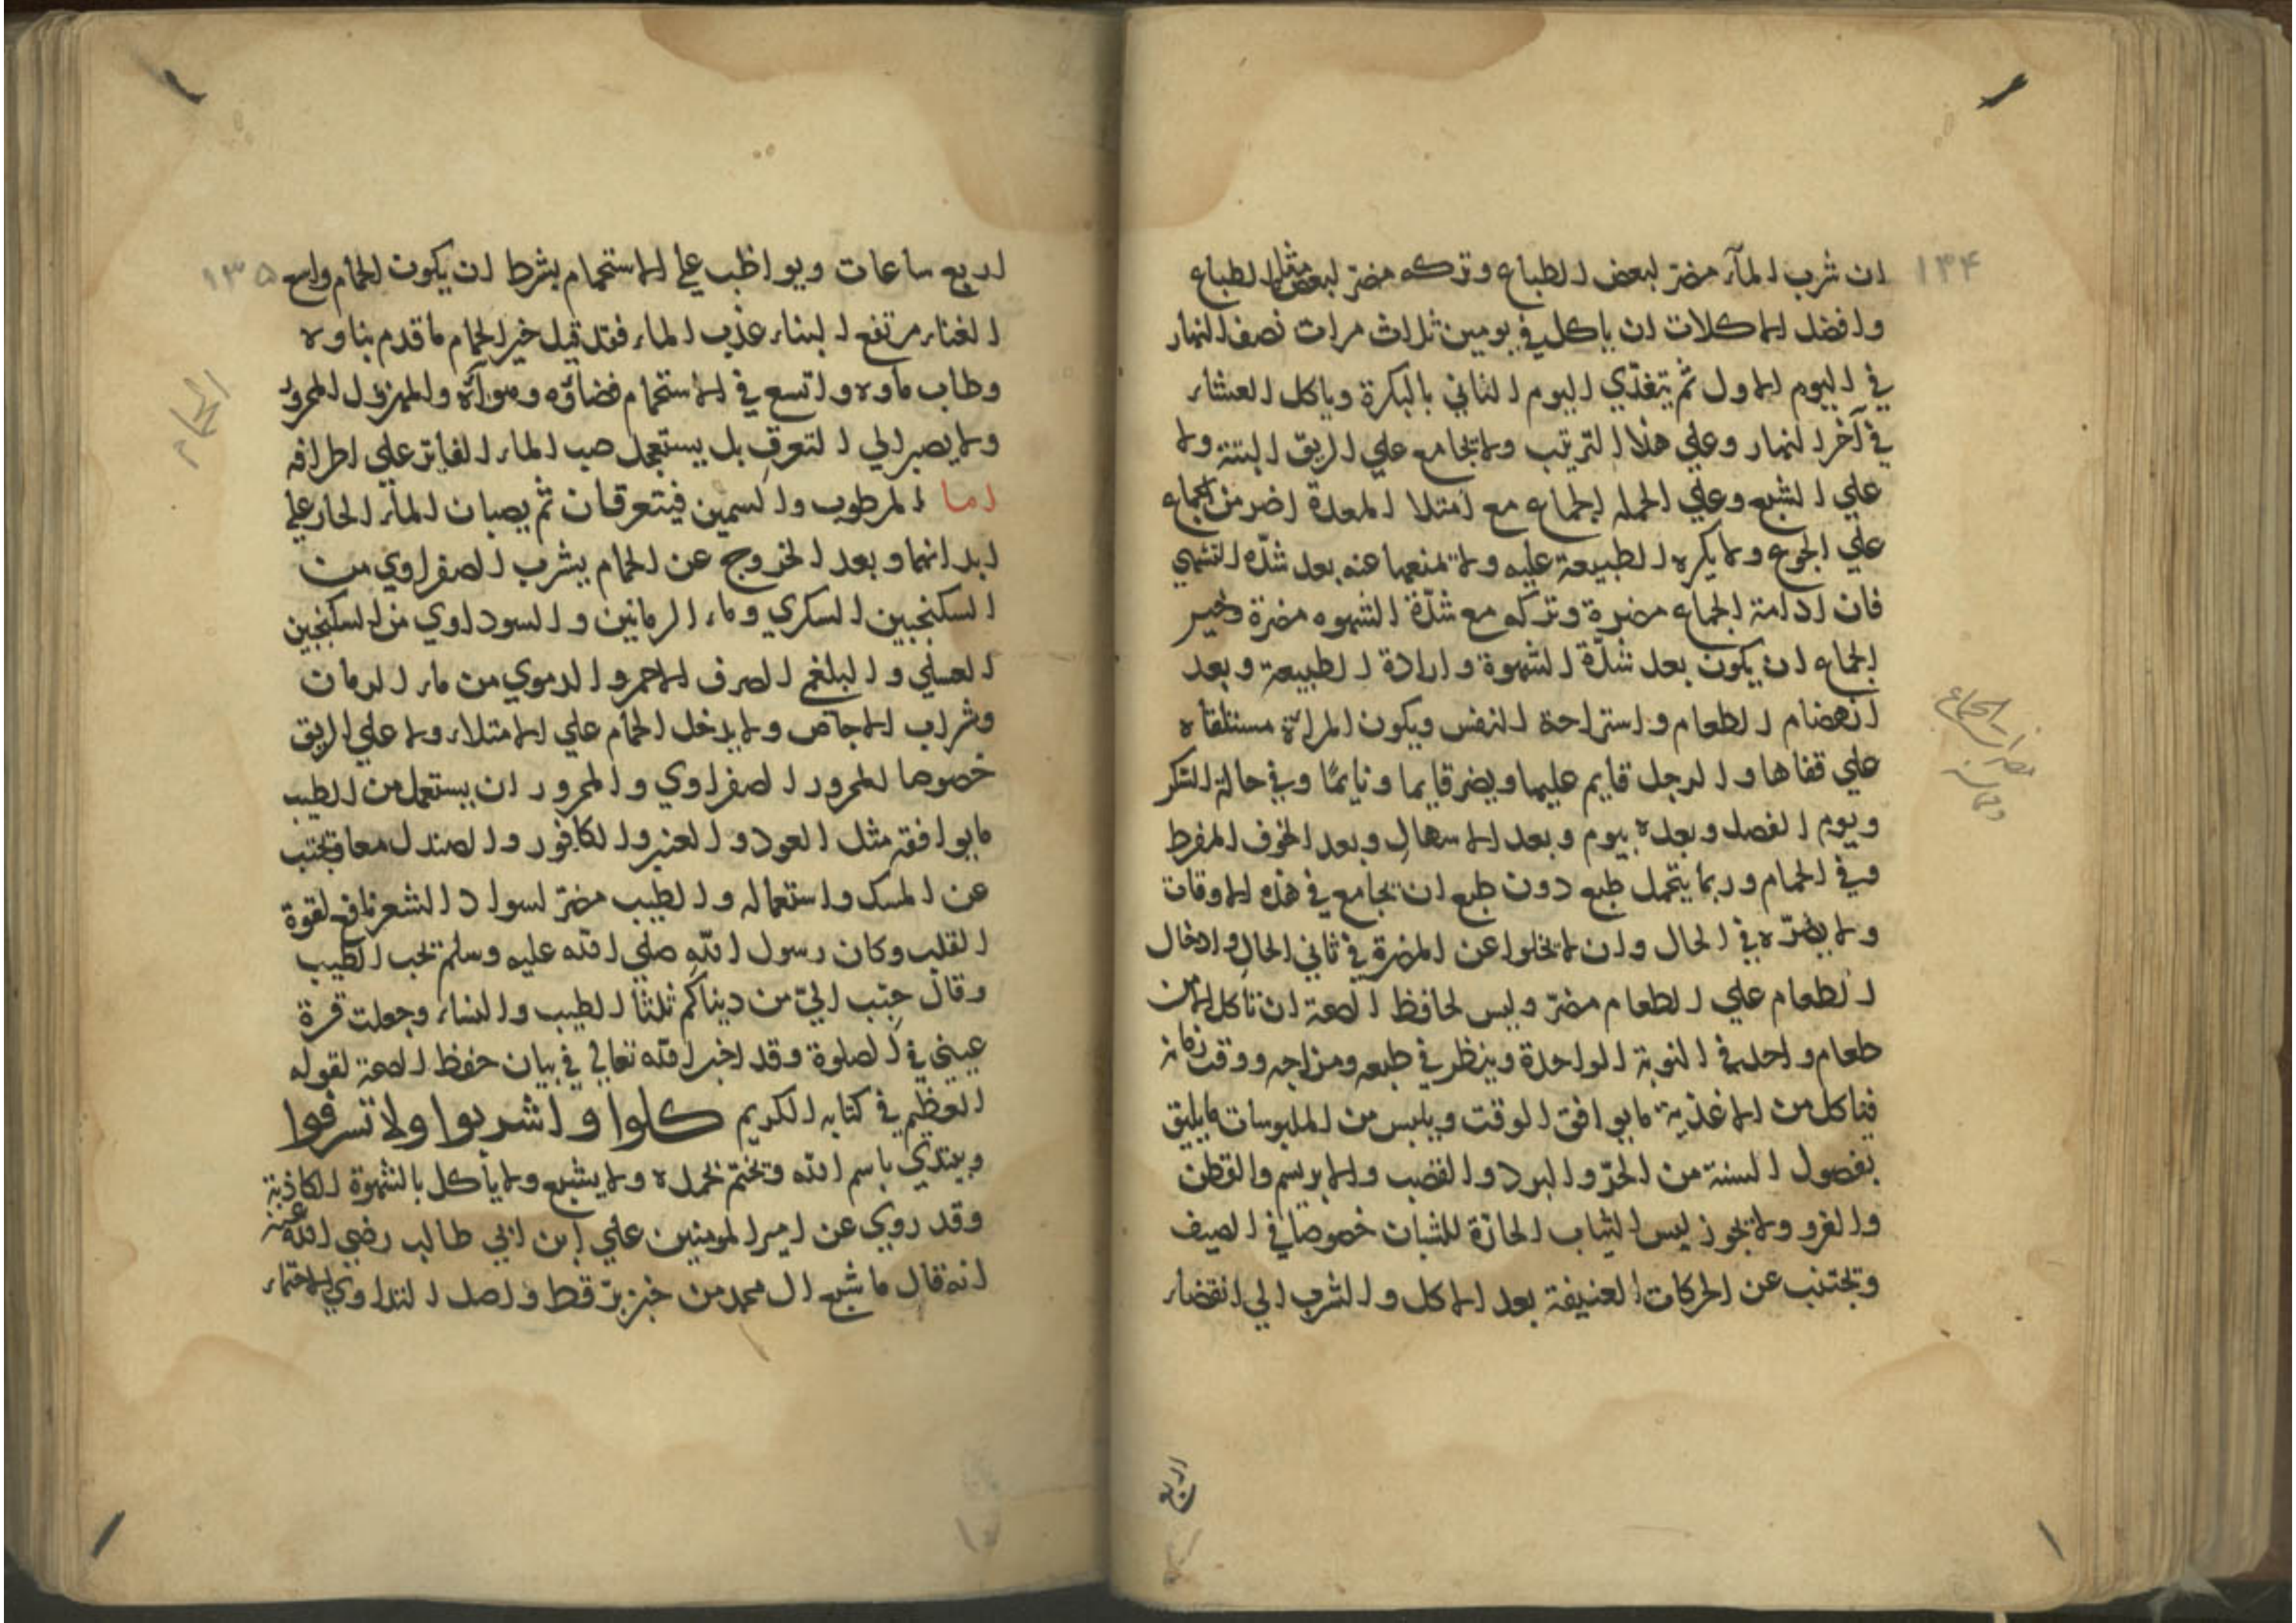 ١٣٤
ان شرب المآء مضرّ لبعض الطباع وتركه مضرّ لبعض مثل الطباع
وافضل الاكلات ان ياكل في يومين ثلاث مرات نصف النهار
في اليوم الاول ثم يتغدّي اليوم الثاني بالبكرة وياكل العشاء
في آخر النهار وعلي هذا الترتيب ولا يجامع علي الريق البتة ولا
علي الشبع وعلي الجمله الجماع مع امتلا المعدة اضر من الجماع
علي الجوع ولا يكره الطبيعة عليه ولا تمنعها عنه بعد شدّه التشهي
فان ادامة الجماع مضرة وتركه مع شدّة الشهوه مضرة وخير
الجماع ان يكون بعد شدّة الشهوة وارادة الطبيعة وبعد
انهضام الطعام واستراحة النفس ويكون المراة مستلقاه
علي قفاها والرجل قايم عليها ويضر قايما ونايمًا وفي حالة السكر
ويوم الفصد وبعده بيوم وبعد الاسهال وبعد الخوف المفرط
وفي الحمام وربما يتحمل طبع دون طبع ان يجامع في هذه الاوقات
ولا يضرّه في الحال وان لا يخلوا عن المضرة في ثاني الحال وادخال
الطعام علي الطعام مضرّ وليس لحافظ الصحة ان تاكل الا من
طعام واحد في النوبة الواحدة وينظر في طبعه ومزاجه ووقت زمانه
فتاكل من الاغذية ما يوافق الوقت ويلبس من الملبوسات ما يليق
بفصول السنة من الحرّ والبرد والقصب والابريسم والقطن
والفرو ولا يجوز لبس الثياب الحارّة للشبان خصوصا في الصيف
وتجتنب عن الحركات العنيفة بعد الاكل والشرب الي انقضاء
الجماع
اربع
١٣٥
اربع ساعات ويواظب علي الاستحمام بشرط ان يكون الحمام واسع
الفناء مرتفع البناء عذب الماء فقد قيل خير الحمام ما قدم بناوه
وطاب ماوه واتسع في الاستحمام فضاؤه وهوآئه والمهزول المحرور
ولا يصبر الي التعرق بل يستعمل صب الماء الفاتر علي اطرافه
اما المرطوب والسمين فيتعرقان ثم يصبان المآء الحار علي
ابدانهما وبعد الخروج عن الحمام يشرب الصفراوي من
السكنجبين السكري وماء الرمانين والسوداوي من السكنجبين
العسلي والبلغمي الصرف الاحمر والدموي من ماء الرمان
وشراب الاجاص ولا يدخل الحمام علي الامتلاء ولا علي الريق
خصوصا المحرور الصفراوي والمحرور ان يستعمل من الطيب
ما يوافقه مثل العود والعنبر والكافور والصندل معا وتجتنب
عن المسك واستعماله والطيب مضرّ لسواد الشعر نافع لقوة
القلب وكان رسول الله صلي الله عليه وسلم يحب الطيب
وقال حبّب اليّ من ديناكم ثلثا الطيب والنساء وجعلت قرة
عيني في الصلوة وقد اخبر الله تعالي في بيان حفظ الصحة لقوله
العظيم في كتابه الكريم كلوا واشربوا ولا تسرفوا
ويبتدي باسم الله وتختم بحمده ولا يشبع ولا ياكل بالشهوة الكاذبة
وقد روي عن امير المومنين علي ابن ابي طالب رضي الله عنه
انه قال ما شبع ال محمد من خبز برّ قط واصل التداوي الاحتماء
الحمام